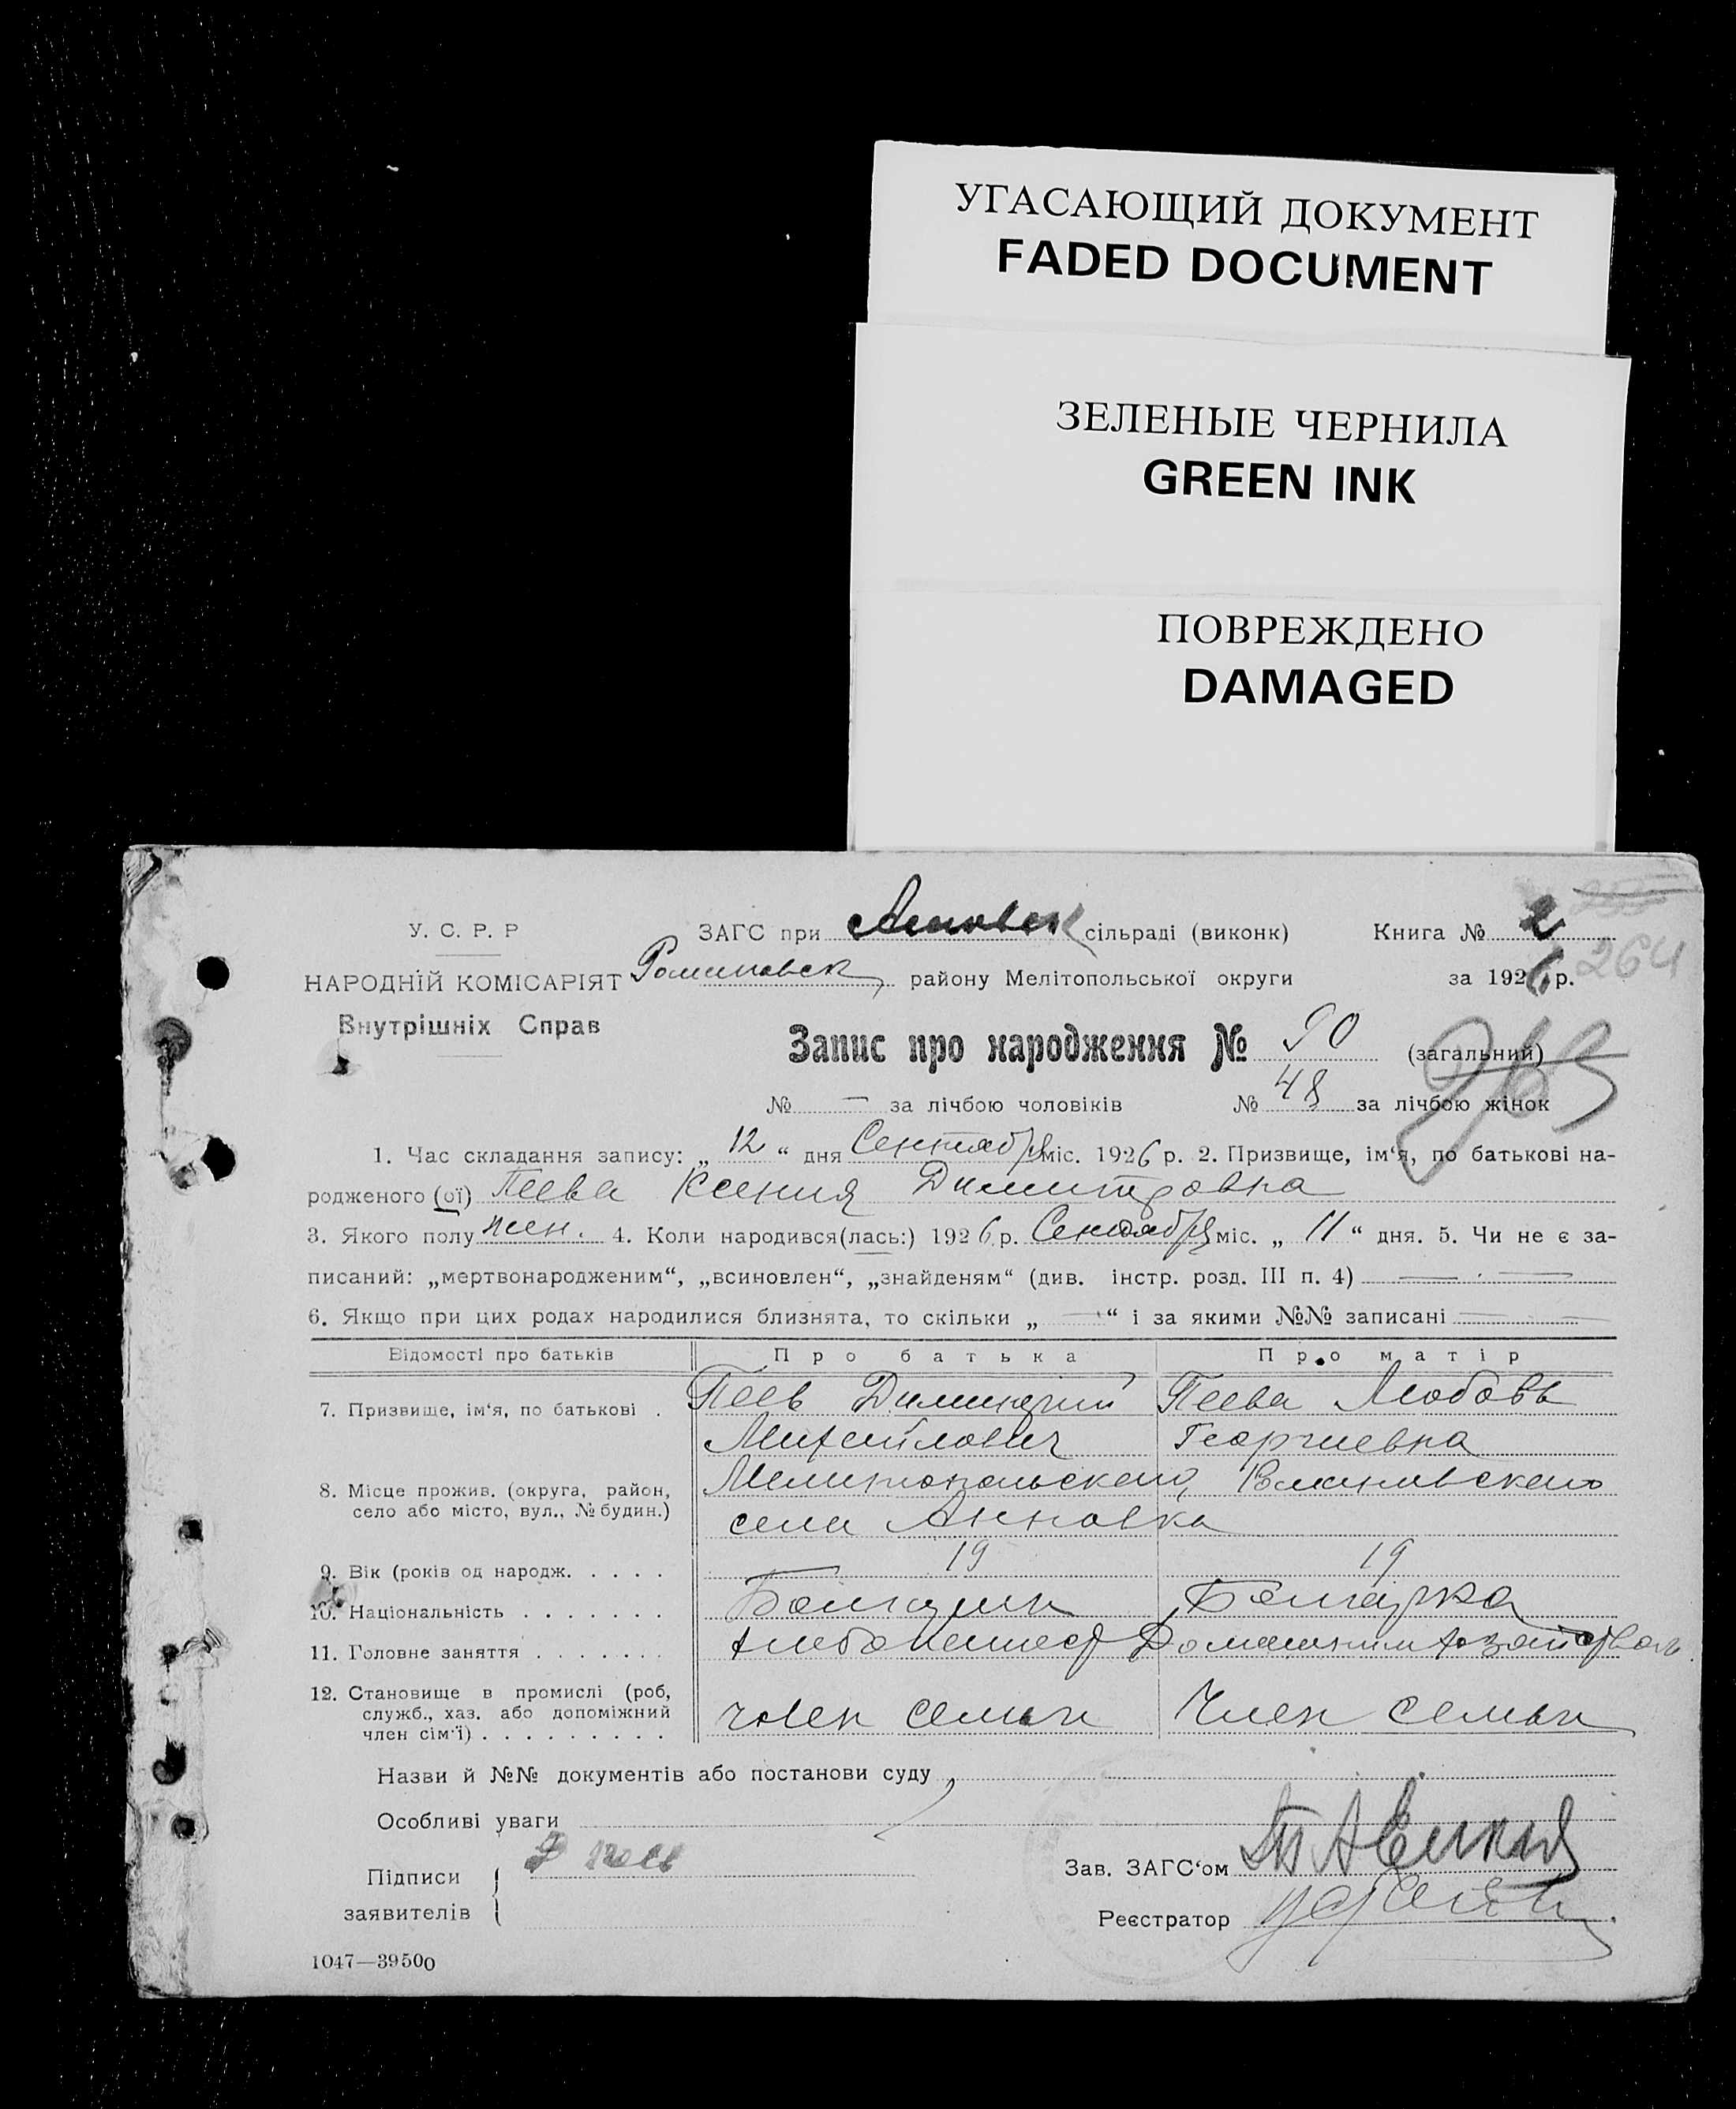 УГАСАЮЩИЙ ДОКУМЕНТ
FADED DOCUMENT
ЗЕЛЕНЫЕ ЧЕРНИЛА
GREEN INK
ПОВРЕЖДЕНО
DAMAGED
У. С. Р. Р
НАРОДНІЙ КОМІСАРІЯТ
Внутрішніх Справ
ЗАГС при сільраді (виконк) Книга № 2
району Мелітопольської округи за 1926 р. 264
Запис про народження № 90 (загальний)
№ — за лічбою чоловіків № 48 за лічбою жінок
1. Час складання запису: „ 12 “ дня Сентября міс. 1926 р. 2. Призвище, ім‘я, по батькові на-
родженого (ої) Пеева Ксения Димитровна
3. Якого полу жен. 4. Коли народився(лась:) 1926 р. Сентября міс. „ 11 “ дня. 5. Чи не є за-
писаний: „мертвонародженим“, „всиновлен“, „знайденям“ (див. інстр. розд. III п. 4) —
6. Якщо при цих родах народилися близнята, то скільки „ — “ і за якими №№ записані —
Відомості про батьків Про батька Про матір
7. Призвище, ім‘я, по батькові . Пеев Димитрий Пеева Любовь
Михайлович Георгиевна
8. Місце прожив. (округа, район, Мелитопольского,
село або місто, вул., № будин.) села Анновка
9. Вік (років од народж. . . . . 19 19
10. Національність . . . . . . . Болгарин Болгарка
11. Головне заняття . . . . . . . Хлебопашеств Домашним хозяйством
12. Становище в промислі (роб,
служб., хаз. або допоміжний член семьи Член семьи
член сім‘ї) . . . . . . . . .
Назви й №№ документів або постанови суду
Особливі уваги
Підписи
заявителів
Зав. ЗАГС‘ом
Реєстратор
1047—39500